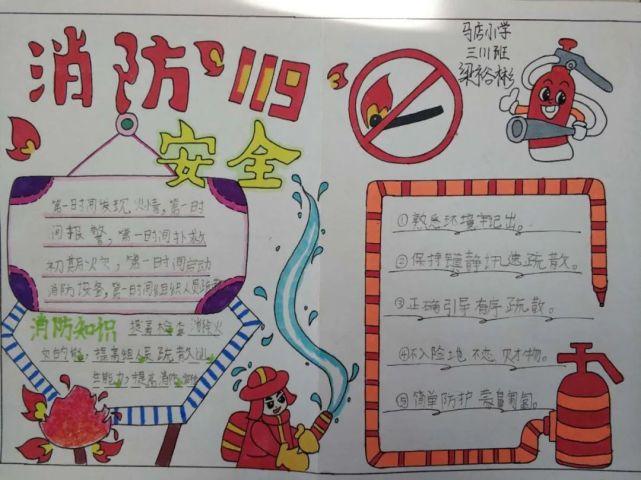 消防119
安全
马店小学
三川班
梁裕彬
第一时间发现火情,第一时
间报警,第一时间扑救
初期火灾,第一时间启动
消防设备,第一时间组织人员疏散
消防知识 提高检查消除火
灾的能,提高组织疏散
生能力,提高消防
①熟悉环境牢记出。
②保持镇静迅速疏散。
③正确引导有序疏散。
④不入险地不恋财物。
⑤简单防护匍匐。